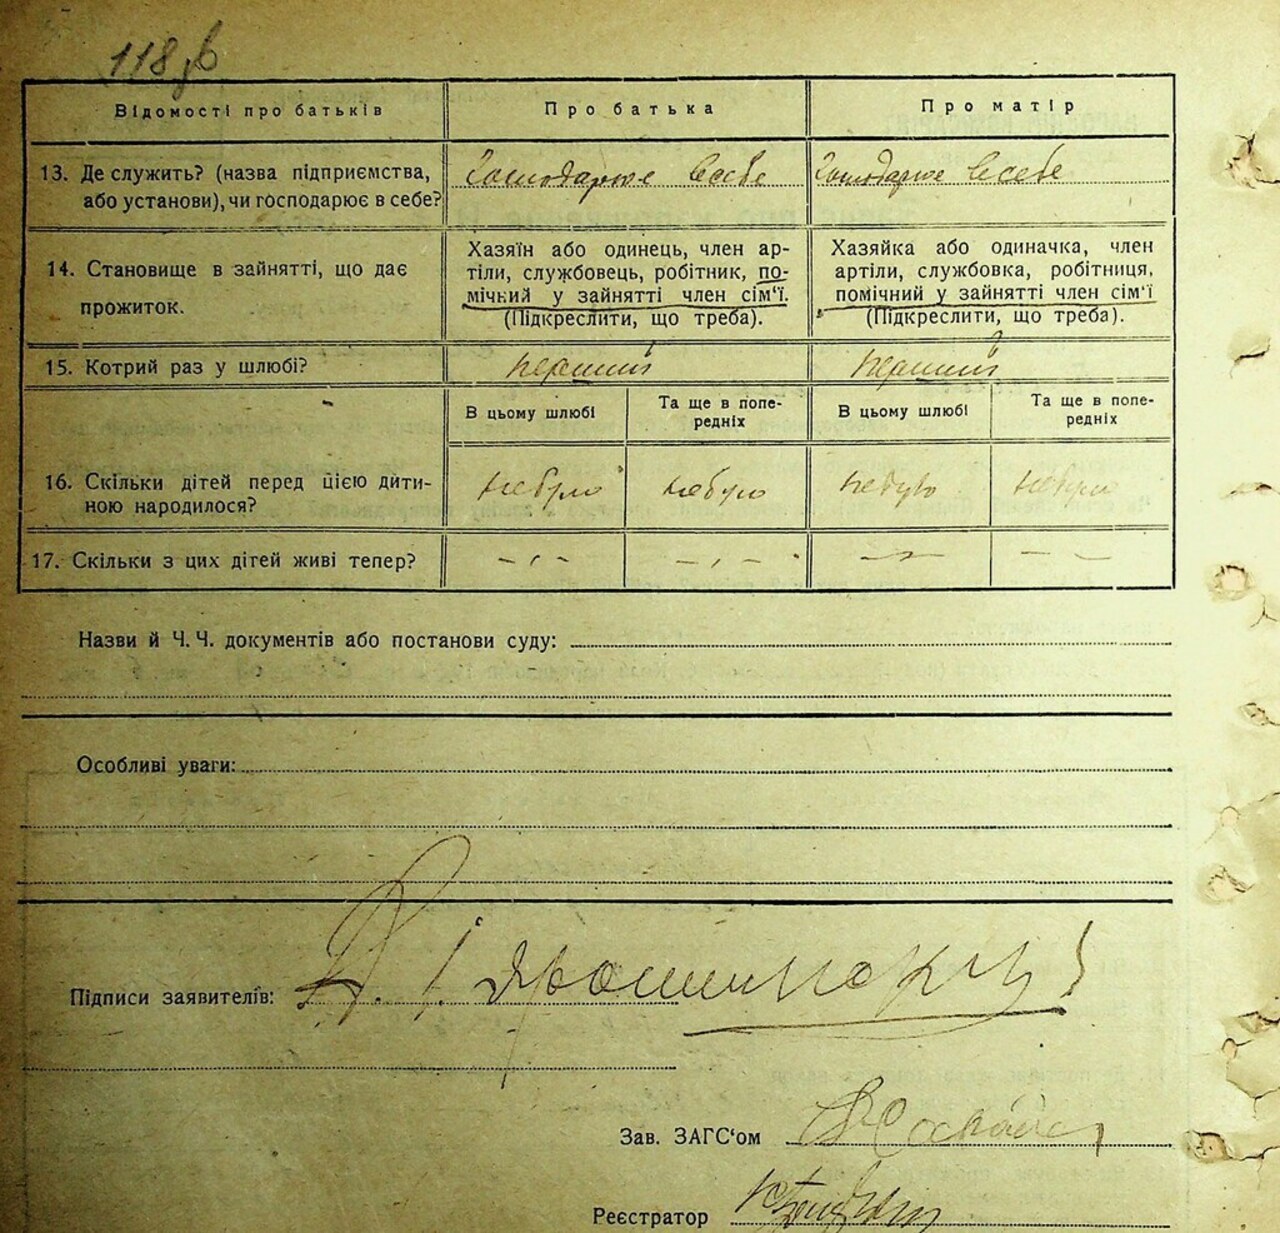 118 зв
Відомості про батьків
Про батька
Про матір
13. Де служить? (назва підприємства,
або установи), чи господарює в себе?
Господарює в себе
Господарює в себе
14. Становище в зайнятті, що дає
прожиток.
Хазяїн або одинець, член ар-
тіли, службовець, робітник, по-
мічний у зайнятті член сім'ї.
(Підкреслити, що треба).
Хазяйка або одиначка, член
артіли, службовка, робітниця,
помічний у зайнятті член сім'ї
(Підкреслити, що треба).
15. Котрий раз у шлюбі?
перший
перший
В цьому шлюбі
Та ще в попе-
редніх
В цьому шлюбі
Та ще в попе-
редніх
16. Скільки дітей перед цією дити-
ною народилося?
небуло
небуло
небуло
небуло
17. Скільки з цих дітей живі тепер?
Назви й Ч. Ч. документів або постанови суду:
Особливі уваги:
Підписи заявителів:
Зав. ЗАГС'ом
Реєстратор